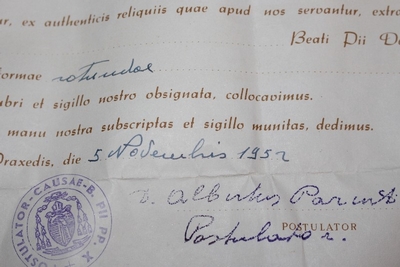 ar, ex authenticis reliquiis quae apud nos servantur, extra
Beati Pii De
formae rotundae
ubri et sigillo nostro obsignata, collocavimus.
manu nostra subscriptas et sigillo munitas, dedimus.
Praxedis, die 5 Novembris 1952
D. Albertus Parenti
POSTULATOR
Postulator.
POSTULATOR-CAUSAE-B. PII PP. X